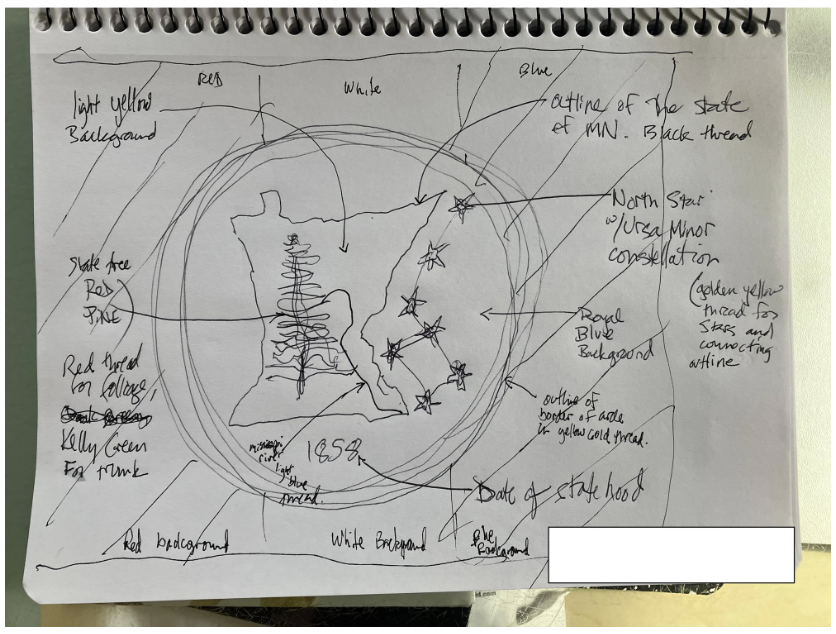 RED
White
Blue
light yellow
Background
outline of the state
of MN. Black thread
North Star
w/Ursa Minor
constellation
(golden yellow
thread for
Stars and
connecting
outline
State tree
RED
PINE
Royal
Blue
Background
Red thread
for foliage,
Kelly Green
For trunk
outline of
border of
in yellow gold thread.
1858
river
light
blue
thread.
Date of statehood
Red background
White Background
Blue
Background